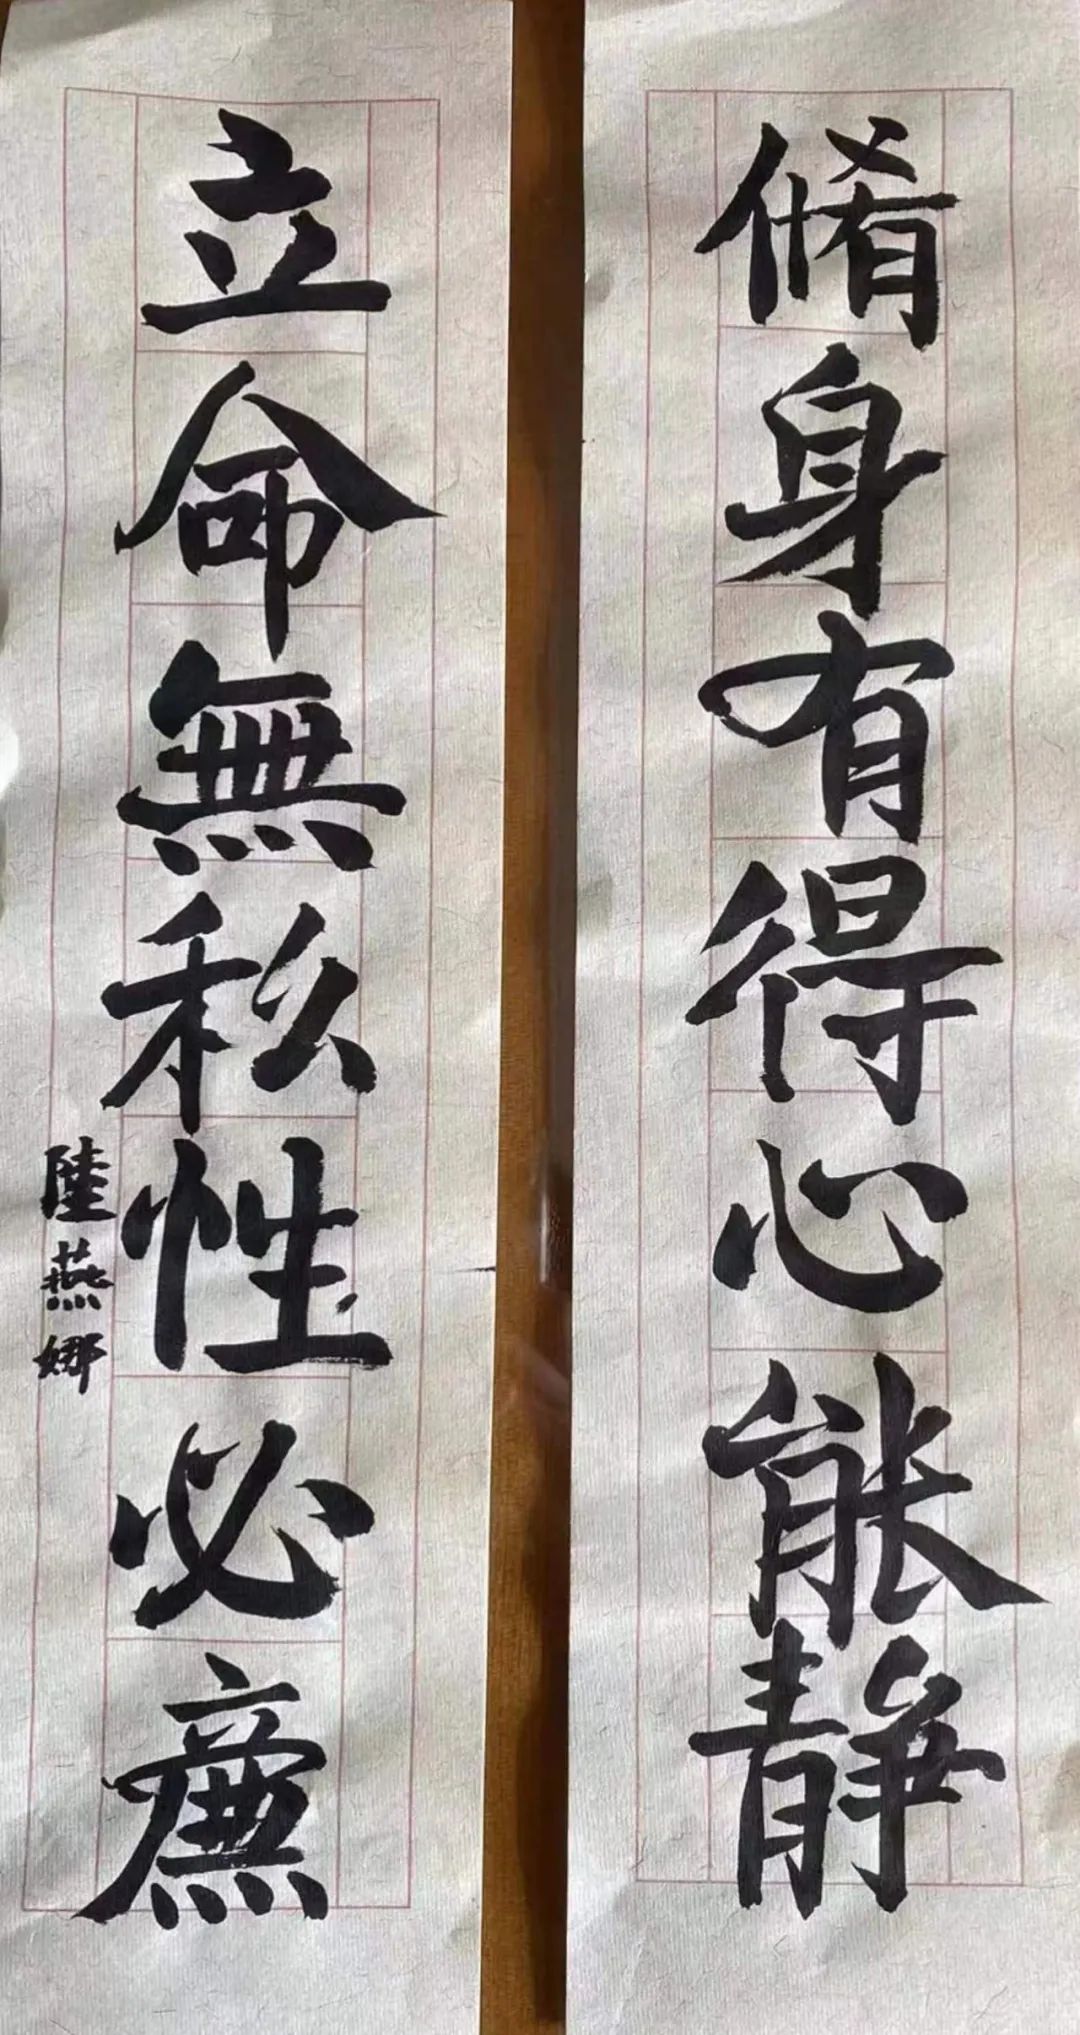 脩身有得心能靜
立命無私性必廉
陸燕娜